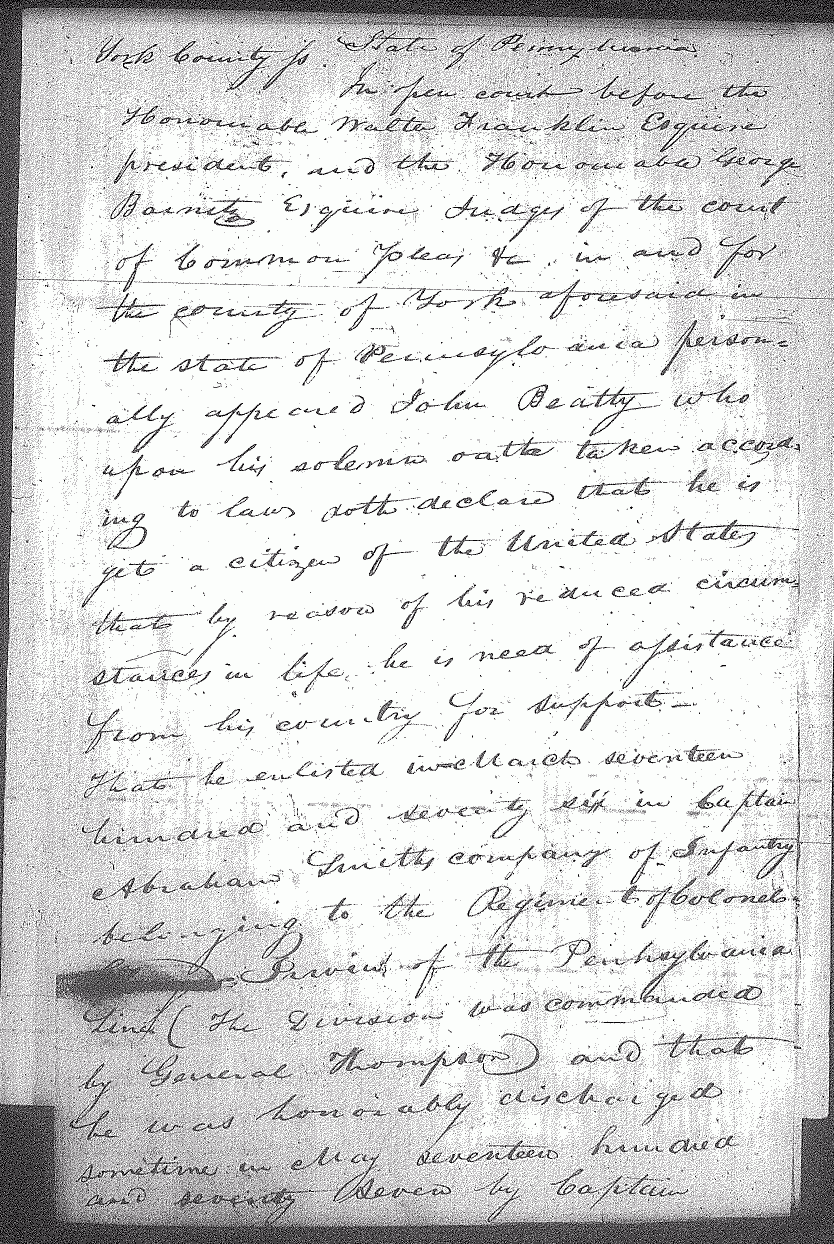 York County ss. State of Pennsylvania
In open court before the
Honourable Walter Franklin Esquire
president, and the Honourable George
Barnitz Esquire Judges of the court
of Common Pleas &c. in and for
the county of York aforesaid in
the state of Pennsylvania person=
ally appeared John Beatty who
upon his solemn oath taken accord=
ing to law doth declare that he is
yet a citizen of the United States
that by reason of his reduced circum=
stances in life he is need of assistance
from his country for support —
that he enlisted in March seventeen
hundred and seventy six in Captain
Abraham Smiths company of Infantry
belonging to the Regiment of Colonel
Irwin of the Pennsylvania
Line (The Division was commanded
by General Thompson) and that
he was honorably discharged
sometime in May seventeen hundred
and seventy seven by Captain